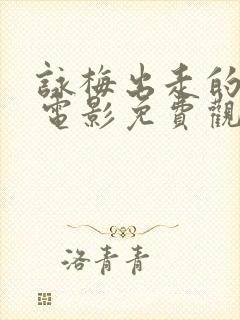 詠梅出走的
電影免費觀
洛青青